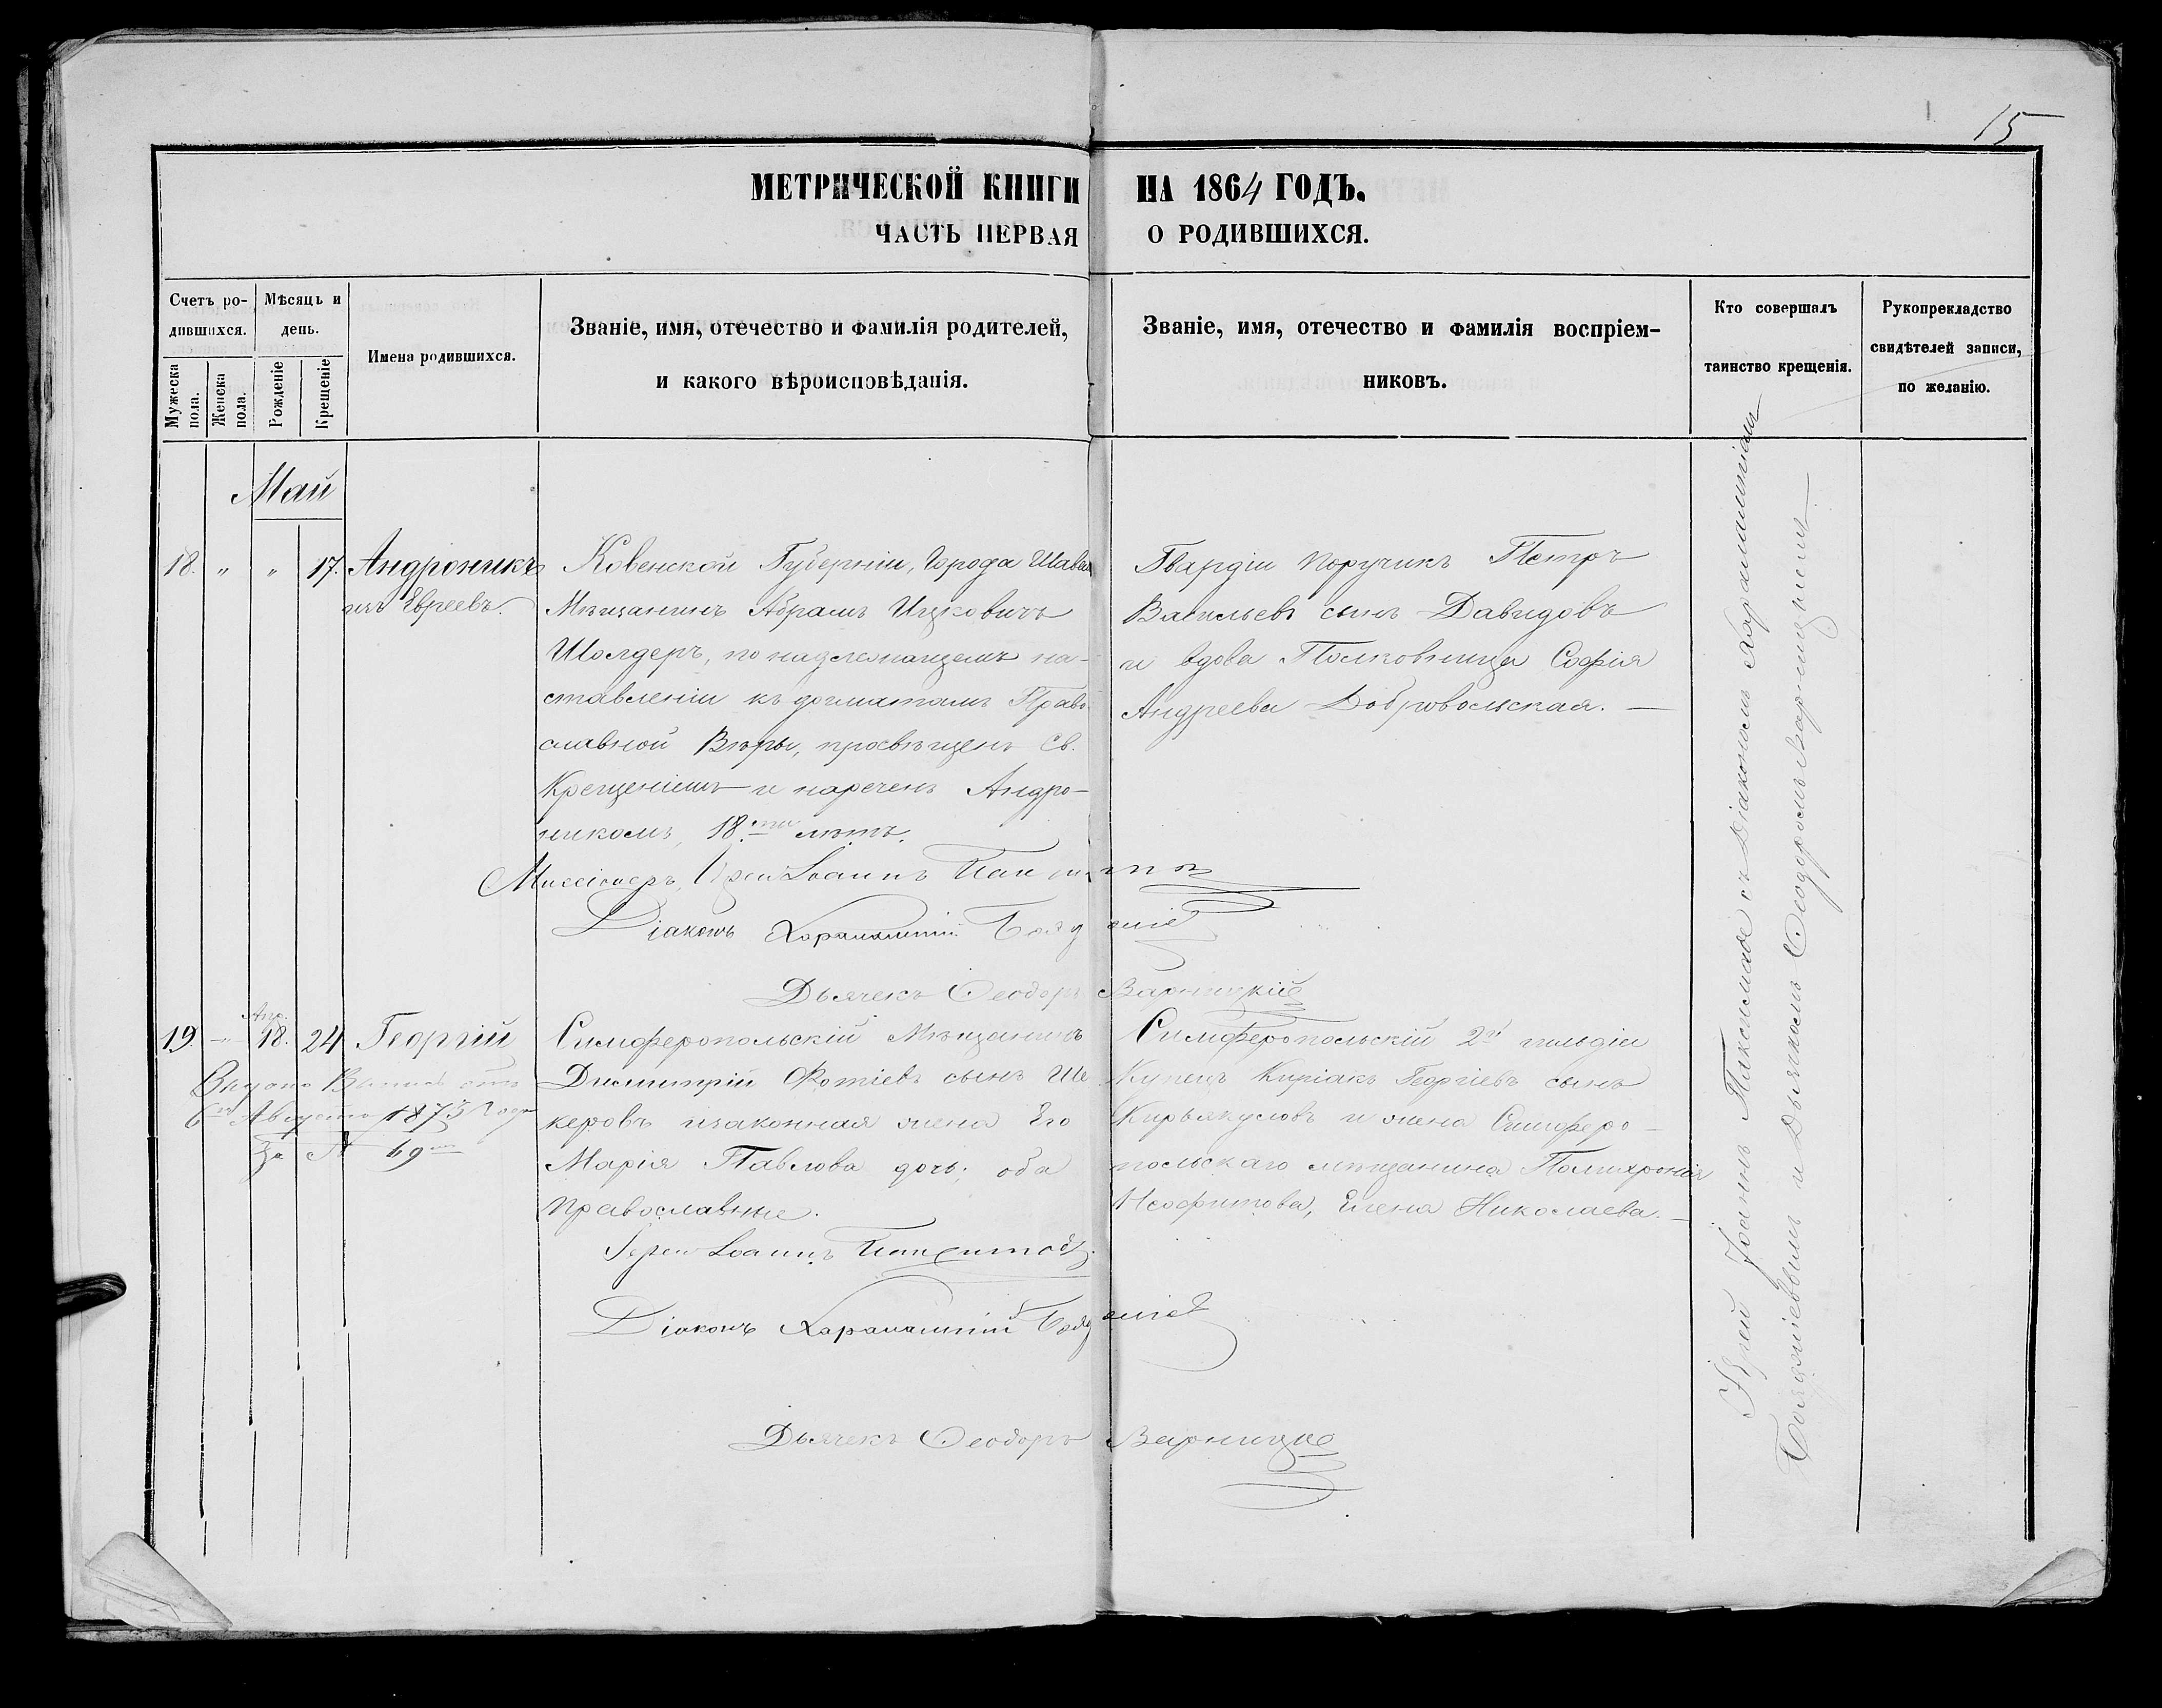 15
МЕТРИЧЕСКОЙ КНИГИ НА 1864 ГОДЪ.
ЧАСТЬ ПЕРВАЯ О РОДИВШИХСЯ.
Счетъ ро-
дившихся.
Мужеска пола.
Женска пола.
Мѣсяцъ и
день.
Рожденіе
Крещеніе
Имена родившихся.
Званіе, имя, отечество и фамилія родителей,
и какого вѣроисповѣданія.
Званіе, имя, отечество и фамилія воспріем-
никовъ.
Кто совершалъ
таинство крещенія.
Рукоприкладство
свидѣтелей записи,
по желанію.
Май
18. „ „ 17. Андроникъ
изъ Евреевъ.
Ковенской Губерніи, Города Шавли
Мѣщанинъ Абрамъ Ицковичъ
Шолдеръ, по надлежащемъ на-
ставленіи къ догматамъ Право
славной Вѣры, просвѣщенъ Св.
Крещеніемъ и нареченъ Андро-
никомъ, 18.ти лѣтъ.
Гвардіи Поручикъ Петръ
Васильевъ сынъ Давидовъ
и вдова Полковница Софія
Андреева Добровольская. —
Миссіонеръ, Іерей Іоаннъ
Діаконъ Харалампій
Дьячекъ Ѳеодоръ Варницкій
Апр.
19. — 18. 24 Георгій
Выдано Выпись отъ
6го Августа 1873 Года
За № 69
Симферопольскій Мѣщанинъ
Димитрій Фотіевъ сынъ Ше
керовъ и законная жена Его
Марія Павлова дочь; оба
православные.
Симферопольскій 2й гильдіи
Купецъ Киріакъ Георгіевъ сынъ
Кирьякуловъ и жена Симферо-
польскаго мѣщанина Полихронія
Неофитова, Елена Николаева. —
Іерей Іоаннъ
Діаконъ Харалампій
Дьячекъ Ѳеодоръ Варницкій
Іерей Іоаннъ съ Діакономъ Харалампіемъ
и Дьячкомъ Ѳеодоромъ Варницкимъ.